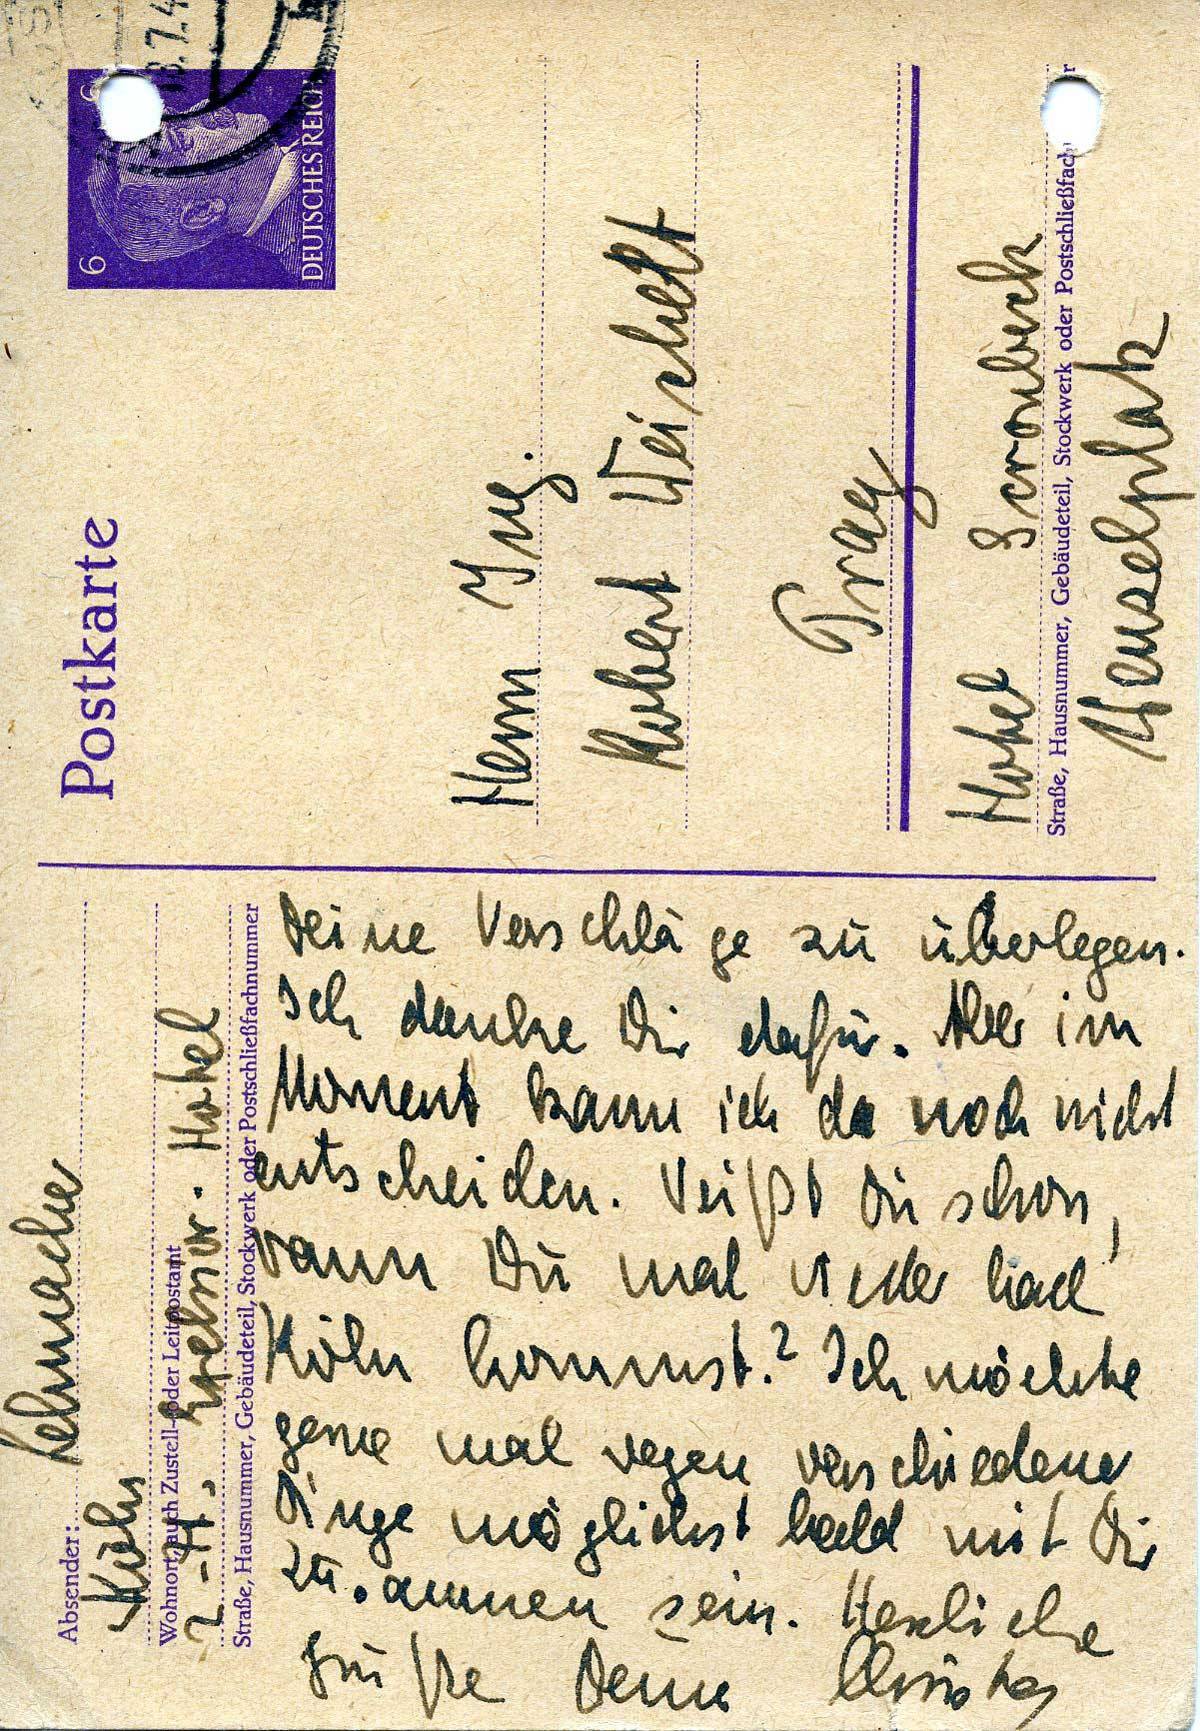 Postkarte
6 6
DEUTSCHES REICH
8.7.4
Herrn Ing.
Robert Weichelt
Prag
Hotel
Straße, Hausnummer, Gebäudeteil, Stockwerk oder Postschließfach r
Wenzelplatz
Absender: Lehmacher
Köln
Wohnort, auch Zustell- oder Leitpostamt
Excelsior. Hotel
Straße, Hausnummer, Gebäudeteil, Stockwerk oder Postschließfachnummer
Deine Vorschläge zu überlegen.
Ich danke Dir dafür. Aber im
Moment kann ich da noch nicht
entscheiden. Weißt Du schon,
wann Du mal wieder nach
Köln kommst? Ich möchte
gerne mal wegen verschiedener
Dinge möglichst bald mit Dir
zusammen sein. Herzliche
Grüße Deine